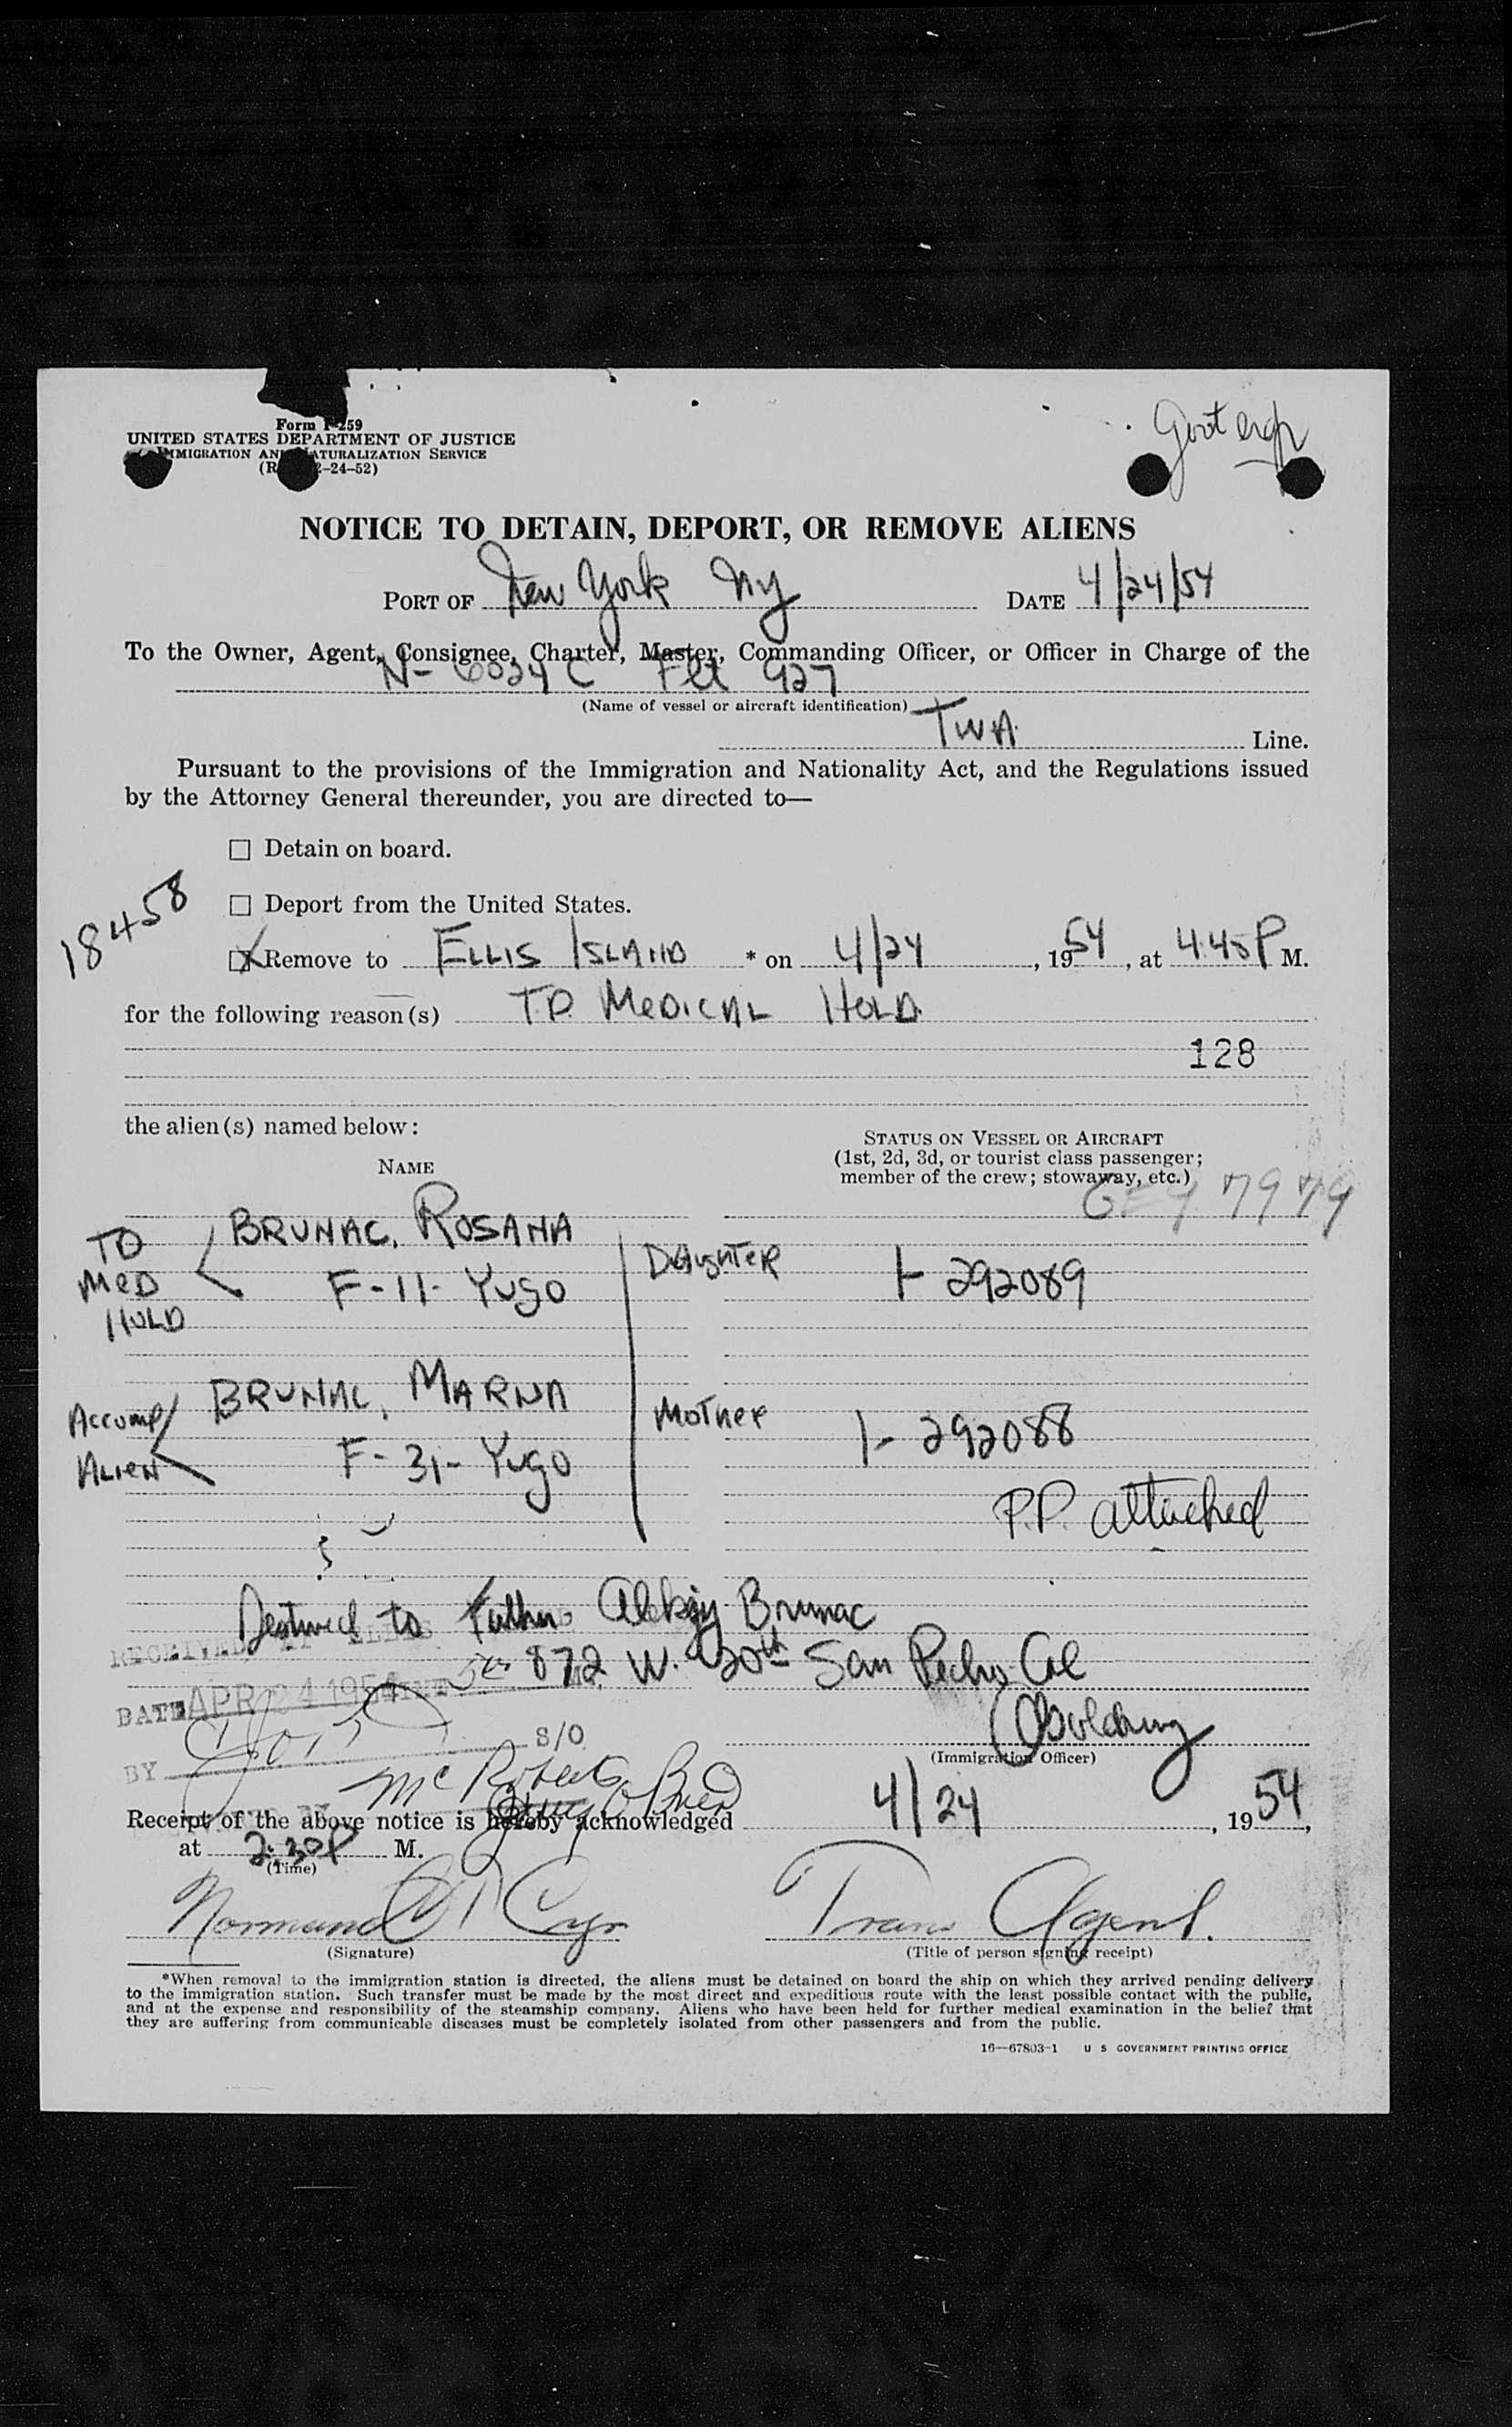 Form I-259
UNITED STATES DEPARTMENT OF JUSTICE
IMMIGRATION AND NATURALIZATION SERVICE
2-24-52)
Govt exp
NOTICE TO DETAIN, DEPORT, OR REMOVE ALIENS
PORT OF New York NY DATE 4/24/54
To the Owner, Agent, Consignee, Charter, Master, Commanding Officer, or Officer in Charge of the
N-6024C Flt 927
(Name of vessel or aircraft identification)
TWA Line.
Pursuant to the provisions of the Immigration and Nationality Act, and the Regulations issued
by the Attorney General thereunder, you are directed to—
☐ Detain on board.
18458
☐ Deport from the United States.
☒ Remove to ELLIS ISLAND * on 4/24, 1954, at 4:45 P M.
for the following reason(s) T.D. MEDICAL HOLD
128
the alien(s) named below:
NAME
STATUS ON VESSEL OR AIRCRAFT
(1st, 2d, 3d, or tourist class passenger;
member of the crew; stowaway, etc.)
7949
TD MED HOLD
BRUNAC, ROSANA
F-11-Yugo
DAUGHTER
I-292089
Accomp ALIEN
BRUNAC, MARNA
F-31-Yugo
MOTHER
I-292088
P.P. attached
Destined to Father Brunac
872 W. 20th San Pedro Cal
RECEIVED AT ELLIS
DATE APR 24 1954
S/O
BY
(Immigration Officer)
Mc Roberts
Receipt of the above notice is hereby acknowledged 4/24, 1954,
at 2:30P M.
(Time)
Normand Cyr
(Signature)
Trans Agent.
(Title of person signing receipt)
*When removal to the immigration station is directed, the aliens must be detained on board the ship on which they arrived pending delivery
to the immigration station. Such transfer must be made by the most direct and expeditious route with the least possible contact with the public,
and at the expense and responsibility of the steamship company. Aliens who have been held for further medical examination in the belief that
they are suffering from communicable diseases must be completely isolated from other passengers and from the public.
16—67803-1 U S GOVERNMENT PRINTING OFFICE